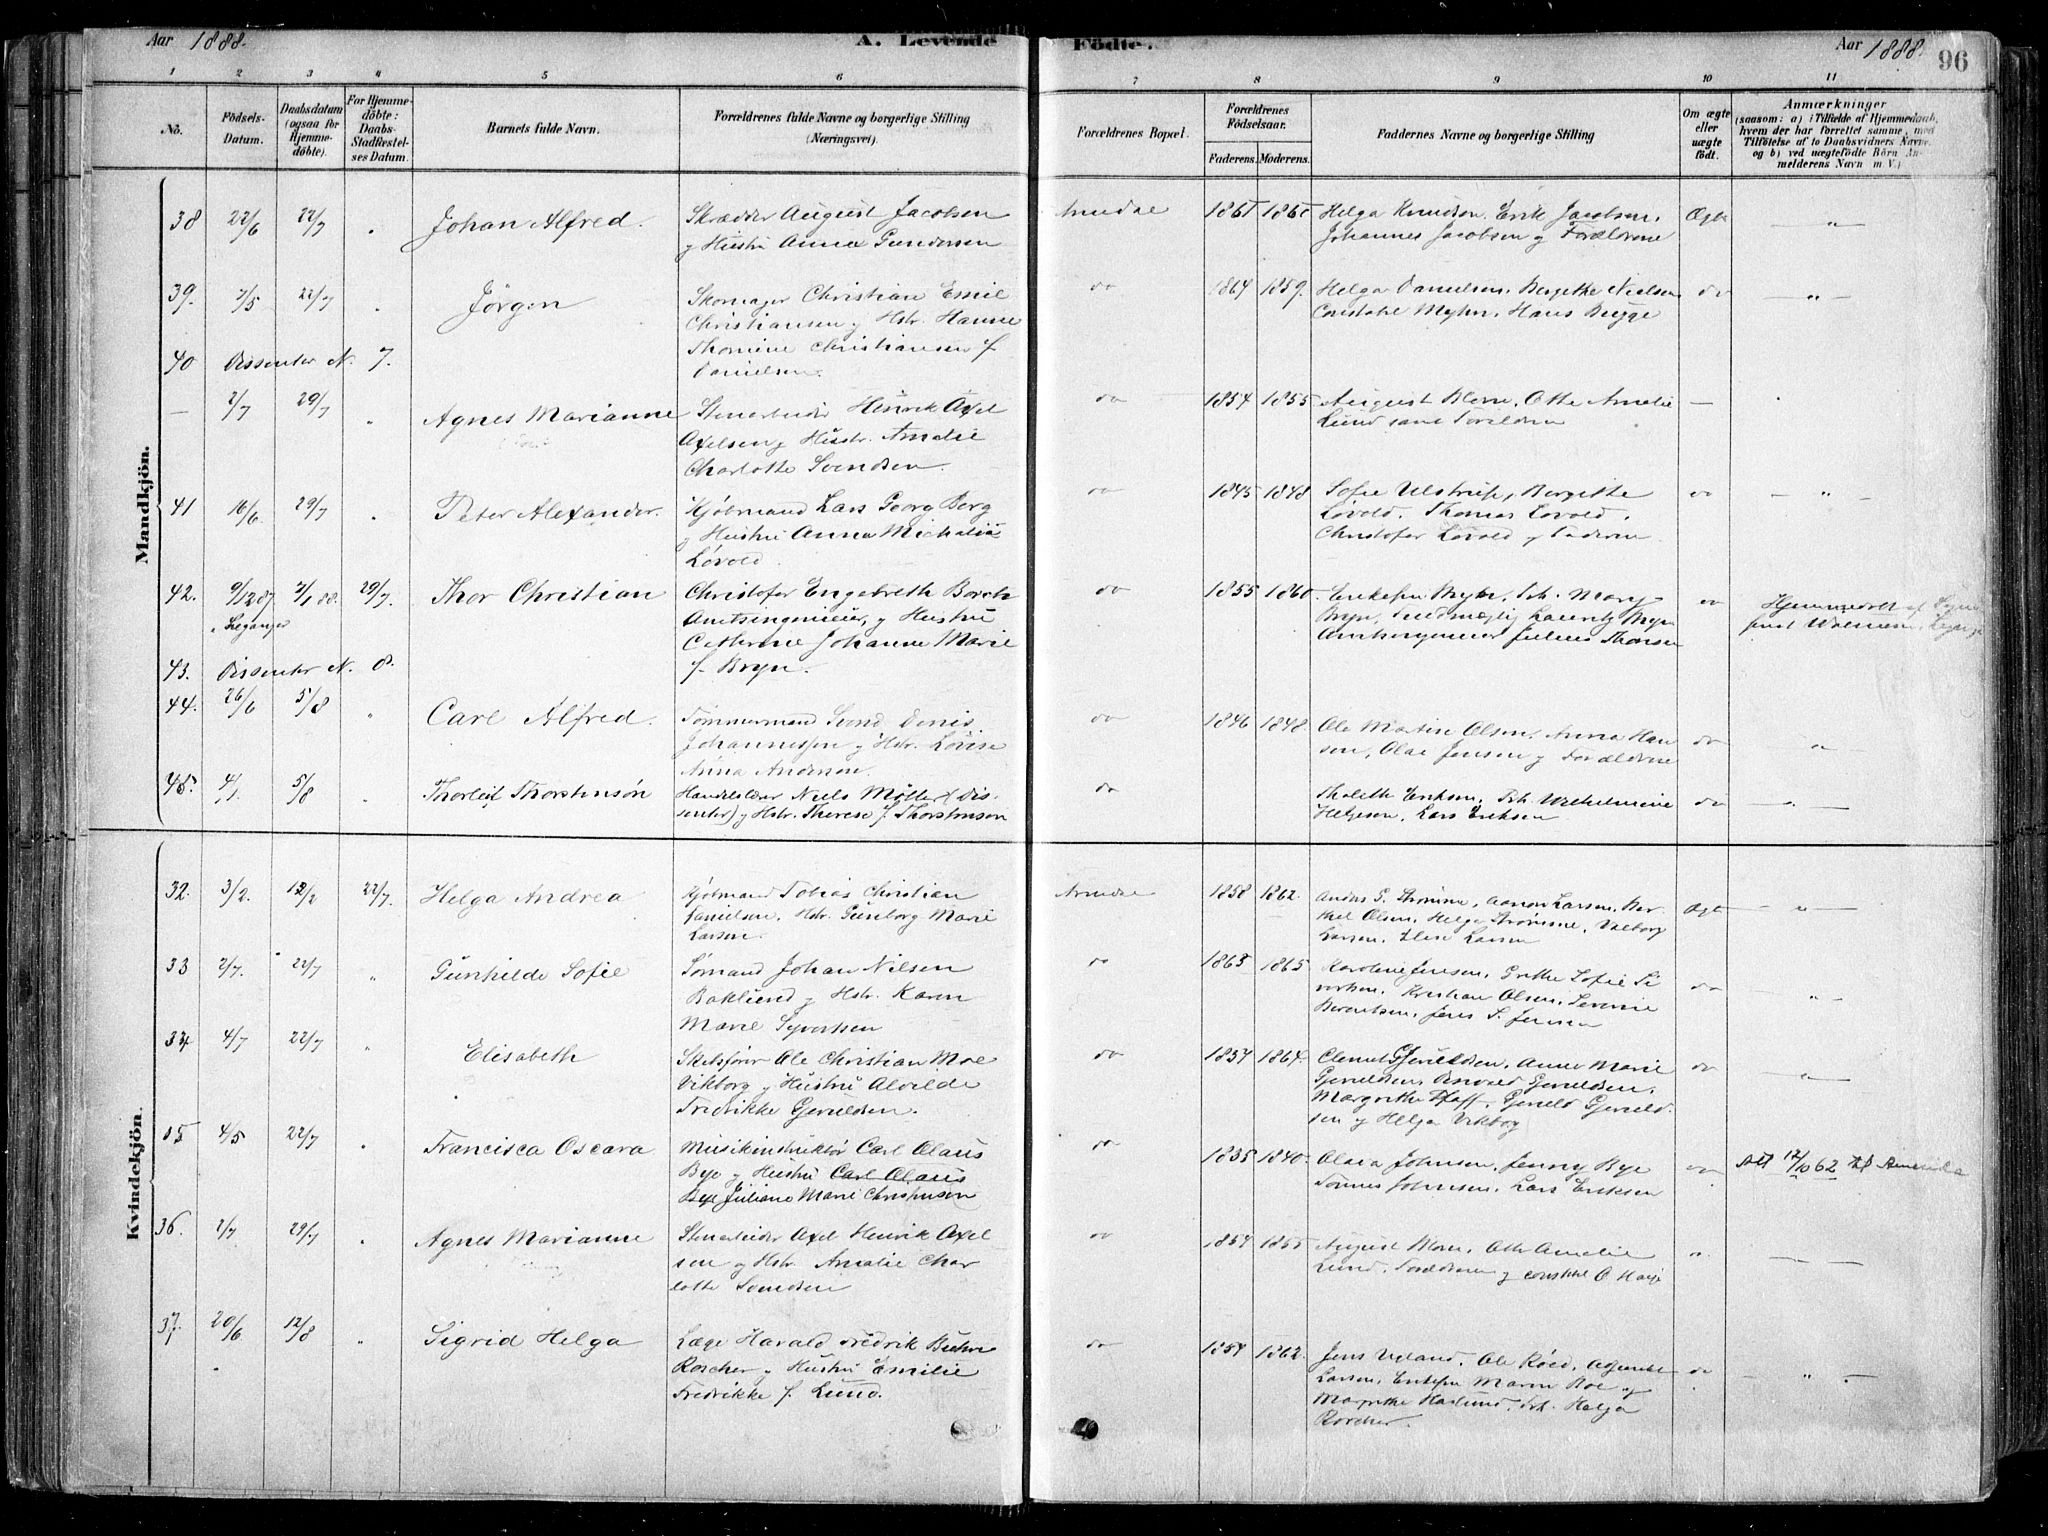 Aar 1888.
A. Levende
Födte.
Aar 1888.
96
1 2 3 4 5 6 7 8 9 10 11
No.
Födsels-
Datum.
Daabsdatum
(ogsaa for
Hjemme-
döbte).
For Hjemme-
döbte:
Daabs-
Stadfæstel-
ses Datum.
Barnets fulde Navn.
Forældrenes fulde Navne og borgerlige Stilling
(Næringsvei).
Forældrenes Bopæl.
Forældrenes
Födselsaar.
Faderens. Moderens.
Faddernes Navne og borgerlige Stilling
Om ægte
eller
uægte
födt.
Anmærkninger
(saasom: a) i Tilfælde af Hjemmedaab,
hvem der har forrettet samme, med
Tilföielse af to Daabsvidners Navne,
og b) ved uægtefödte Börn An-
melderens Navn m. V.)
Mandkjön.
38 22/6 22/7 " Johan Alfred.
Skrædder August Jacobsen
og Hustru Anna Gundersen
Arendal 1865 1865
Helga Knudsen. Erik Jacobsen.
Johannes Jacobsen og Forældrene
Ægte "
39. 7/5 22/7 " Jörgen
Skomager Christian Emil
Christiansen og Hstr. Hanne
Thomine Christiansen f.
Danielsen.
do 1864 1859.
Helga Danielsen, Bergithe Nielsen
Constabel Myhn. Hans Bugge
do "
40 Dissenter N. 7.
— 2/7 29/7 " Agnes Marianne
Stenarbeider Henrik Axel
Axelsen og Hustr. Amalie
Charlotte Svendsen.
do 1854 1855
August Blom, Otto Amalie
Lund samt Forældrene
—
41 16/6 29/7 " Peter Alexander.
Kjøbmand Lars Georg Berg
og Hustru Anna Michaline
Løvold.
do 1845 1848
Sofie Ulstrup, Bergitte
Løvold. Thomas Løvold.
Christofer Løvold og Faderen.
do — " —
42. 9/12 87. 7/1 88. 29/7. Thor Christian
i Leganger
Christofer Engebreth Borch
Amtsingeniør, og Hustru
Catherine Johanne Marie
f. Bryn.
do 1855 1860.
Enkefru Bryn, Frk. Mary
Bryn, Fuldmægtig Lauritz Bryn
Amtsingeniør Julius Thorsen
do
Hjemmedøbt af Sogne
43. Dissenter N. 8.
44. 26/6 5/8 " Carl Alfred.
Tømmermand Svend Denis
Johannessen og Hstr. Lovise
Anna Andersen.
do 1846 1848.
Ole Martin Olsen, Anna Han
sen, Olai Jensen og Forældrene
do "
45. 4/1 5/8 " Thorleif Thorstensön
Handelslærer Niels Møller (Dis-
senter) og Hstr. Therese f. Thorstensen
do
Thaleth Eriksen, Frk. Wilhelmine
Helgesen, Lars Eriksen
do " —
Kvindekjön.
32. 3/2. 12/2 22/7. Helga Andrea
Kjøbmand Tobias Christian
Danielsen, Hstr. Gunborg Marie
Larsen.
Arendal 1858 1862.
Anders G. Strømme, Aanon Larsen, Ber-
thel Olsen, Helga Strømme, Valborg
Larsen, Elise Larsen
Ægte — " —
33 2/7. 22/7 " Gunhilde Sofie
Sømand Johan Nilsen
Baklund og Hstr. Karen
Marie Syvertsen
do 1863 1865
Karoline Jensen, Grethe Sofie Si
vertsen. Kristian Olsen, Severine
Berentsen, Jens S. Jensen
do " —
34 4/7 22/7 " Elisabeth
Skibsfører Ole Christian Moe
Vikborg og Hustru Alvilde
Fredrikke Gjeruldsen.
do 1857 1864.
Clemet Gjeruldsen, Anne Marie
Gjeruldsen, Osvald Gjeruldsen,
Margrethe Pfaff, Gjeruld Gjeruld-
sen og Helga Vikborg
do "
35 4/5 22/7 " Francisca Oscara
Musikinstruktør Carl Olaus
Bye og Hustru Carl Olaus
Bye Juliane Marie Christensen
do 1835 1840.
Olava Johnsen, Jenny Bye
Tønnes Johnsen, Lars Eriksen
do Att 12/10 62 til Amerika
36. 2/7 29/7 " Agnes Marianne
Stenarbeider Axel Henrik Axel
sen og Hstr. Amalie Char
lotte Svendsen
do 1854 1855
August Blom, Otto Amalie
Lund. Forældrene og
" — —
37. 20/6 12/8 " Sigrid Helga
Læge Harald Fredrik Buhre
Roscher og Hustru Emilie
Fredrikke f. Lund.
do 1854 1862.
Jens Ugland, Ole Röed, Adjunkt
Larsen, Enkefru Maren Boe og
Margrethe Haslund, Frk. Helga
Roscher.
do — " —